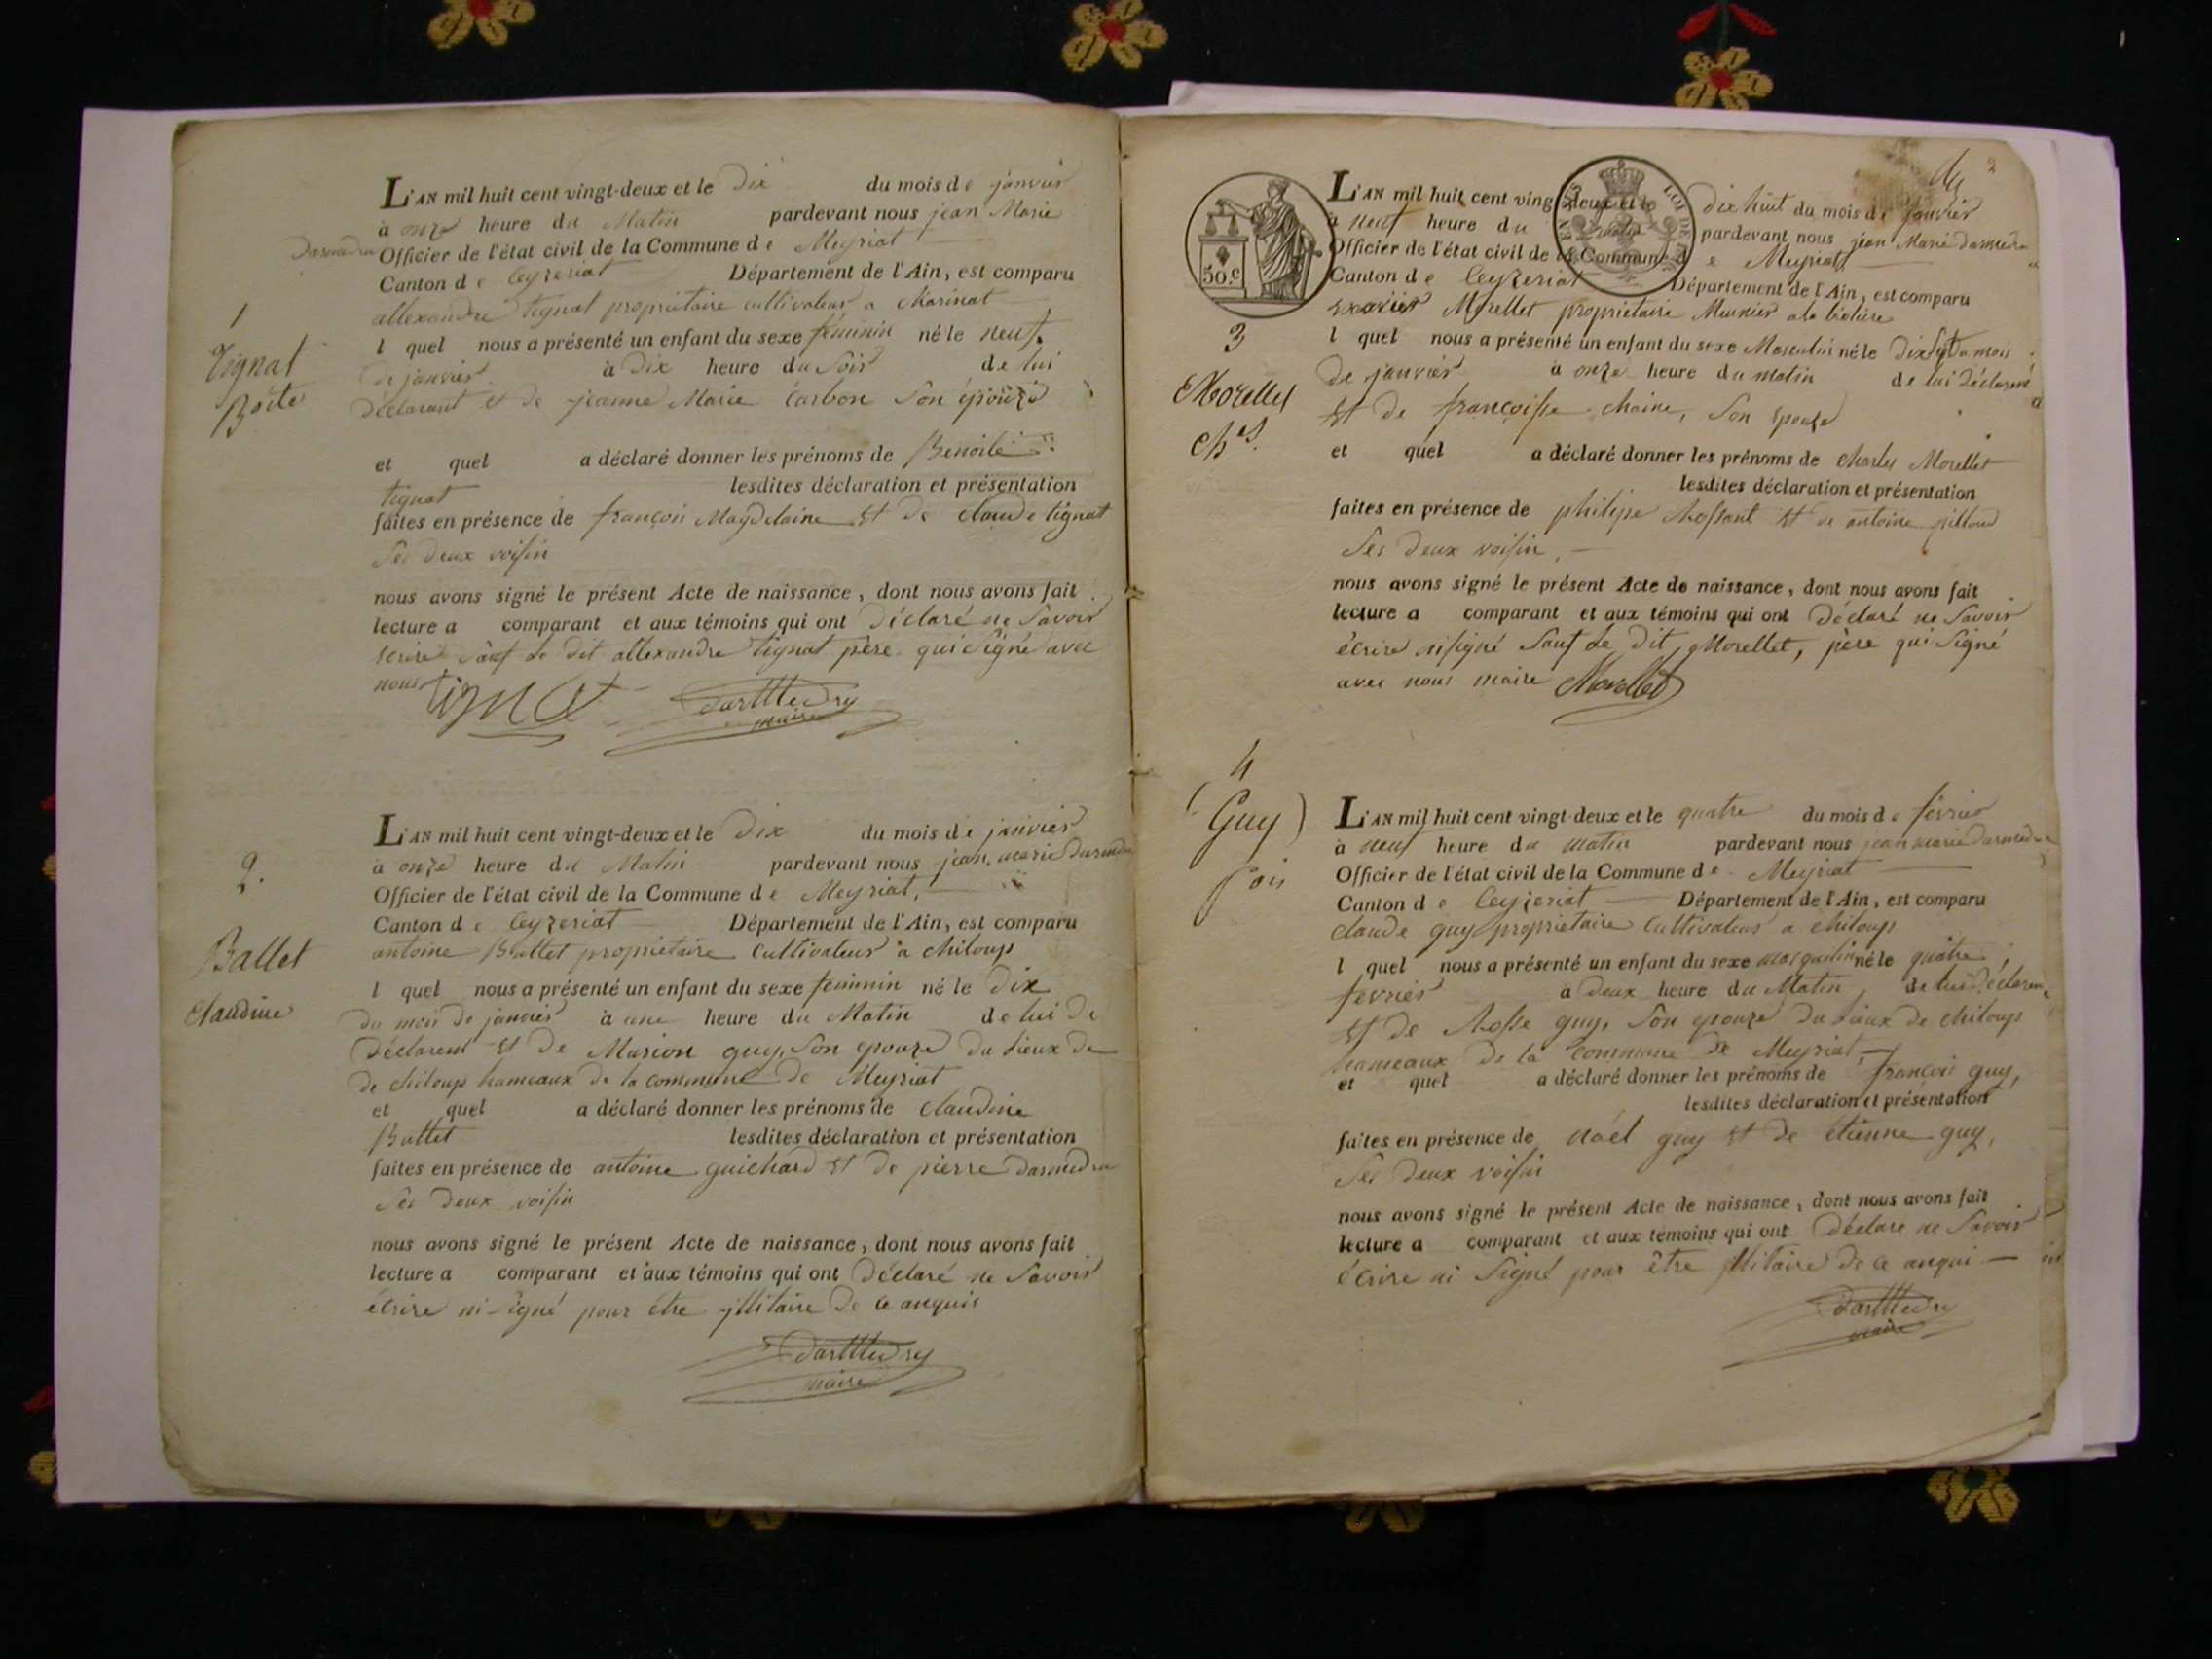 L'AN mil huit cent vingt-deux et le Dix du mois de janvier
à onze heure du Matin pardevant nous jean Marie
Darmedru Officier de l'état civil de la Commune de Meyriat
Canton de Ceyzeriat Département de l'Ain, est comparu
allexandre tignat propriétaire cultivateur a Marinat
l quel nous a présenté un enfant du sexe féminin né le neuf
de janvier à Dix heure du Soir de lui
Déclarant et de jeanne Marie Carbon Son épouze
et quel a déclaré donner les prénoms de Benoite
tignat lesdites déclaration et présentation
faites en présence de françois Magdelaine et de claude tignat
Ses deux voisin
nous avons signé le présent Acte de naissance, dont nous avons fait
lecture a comparant et aux témoins qui ont Déclaré ne Savoir
écrire Sauf le dit allexandre tignat père qui Signé avec
nous Tignat Darmedru
maire
1
Tignat
Boite
L'AN mil huit cent vingt-deux et le Dix du mois de janvier
à onze heure du Matin pardevant nous jean marie Darmedru
Officier de l'état civil de la Commune de Meyriat,
Canton de Ceyzeriat Département de l'Ain, est comparu
antoine Ballet propriétaire Cultivateur à chiloup
l quel nous a présenté un enfant du sexe feminin né le Dix
du mois de janvier à une heure du Matin de lui De
Déclarent et De Marion guy, Son epouze du Lieux de
de chiloup hameaux de la commune de Meyriat
et quel a déclaré donner les prénoms de Claudine
Ballet lesdites déclaration et présentation
faites en présence de antoine guichard et de pierre Darmedru
Ses Deux voisin
nous avons signé le présent Acte de naissance, dont nous avons fait
lecture a comparant et aux témoins qui ont Déclaré ne Savoir
écrire ni Signé pour être jllitaire De ce anquis
Darmedru
maire
2.
Ballet
Claudine
2
50.c
LOI DE
L'AN mil huit cent vingt-deux et le dix huit du mois de janvier
à neuf heure du matin pardevant nous jean Marie Darmedru
Officier de l'état civil de la Commune de Meyriat
Canton de Ceyzeriat Département de l'Ain, est comparu
Morellet propriétaire Meunier a la
l quel nous a présenté un enfant du sexe Masculin né le Dix Sept du mois
De janvier à onze heure du matin de lui Déclarent
et de françoisse chaine, Son epouze
et quel a déclaré donner les prénoms de charles Morellet
lesdites déclaration et présentation
faites en présence de philipe Rossant et de antoine pilloud
Ses Deux voisin,
nous avons signé le présent Acte de naissance, dont nous avons fait
lecture a comparant et aux témoins qui ont Déclaré ne Savoir
écrire ni signé Sauf le Dit Morellet, père qui Signé
avec nous maire Morellet
3
Morellet
Ches.
L'AN mil huit cent vingt-deux et le quatre du mois de février
à neuf heure du matin pardevant nous jean marie Darmedru
Officier de l'état civil de la Commune de Meyriat
Canton de Ceyzeriat Département de l'Ain, est comparu
claude guy propriétaire Cultivateur a chiloup
l quel nous a présenté un enfant du sexe masqulin né le quatre
fevrier à Deux heure du Matin de lui Déclarent
et de Rosse guy, Son epouze du Lieux de chiloup
hameaux de la commune de Meyriat,
et quel a déclaré donner les prénoms de françois guy,
lesdites déclaration et présentation
faites en présence de Noël guy et de étienne guy,
Ses Deux voisin
nous avons signé le présent Acte de naissance, dont nous avons fait
lecture a comparant et aux témoins qui ont Déclaré ne Savoir
écrire ni Signé pour être jllitaire De ce anqui
Darmedru
maire
4
Guy
fois